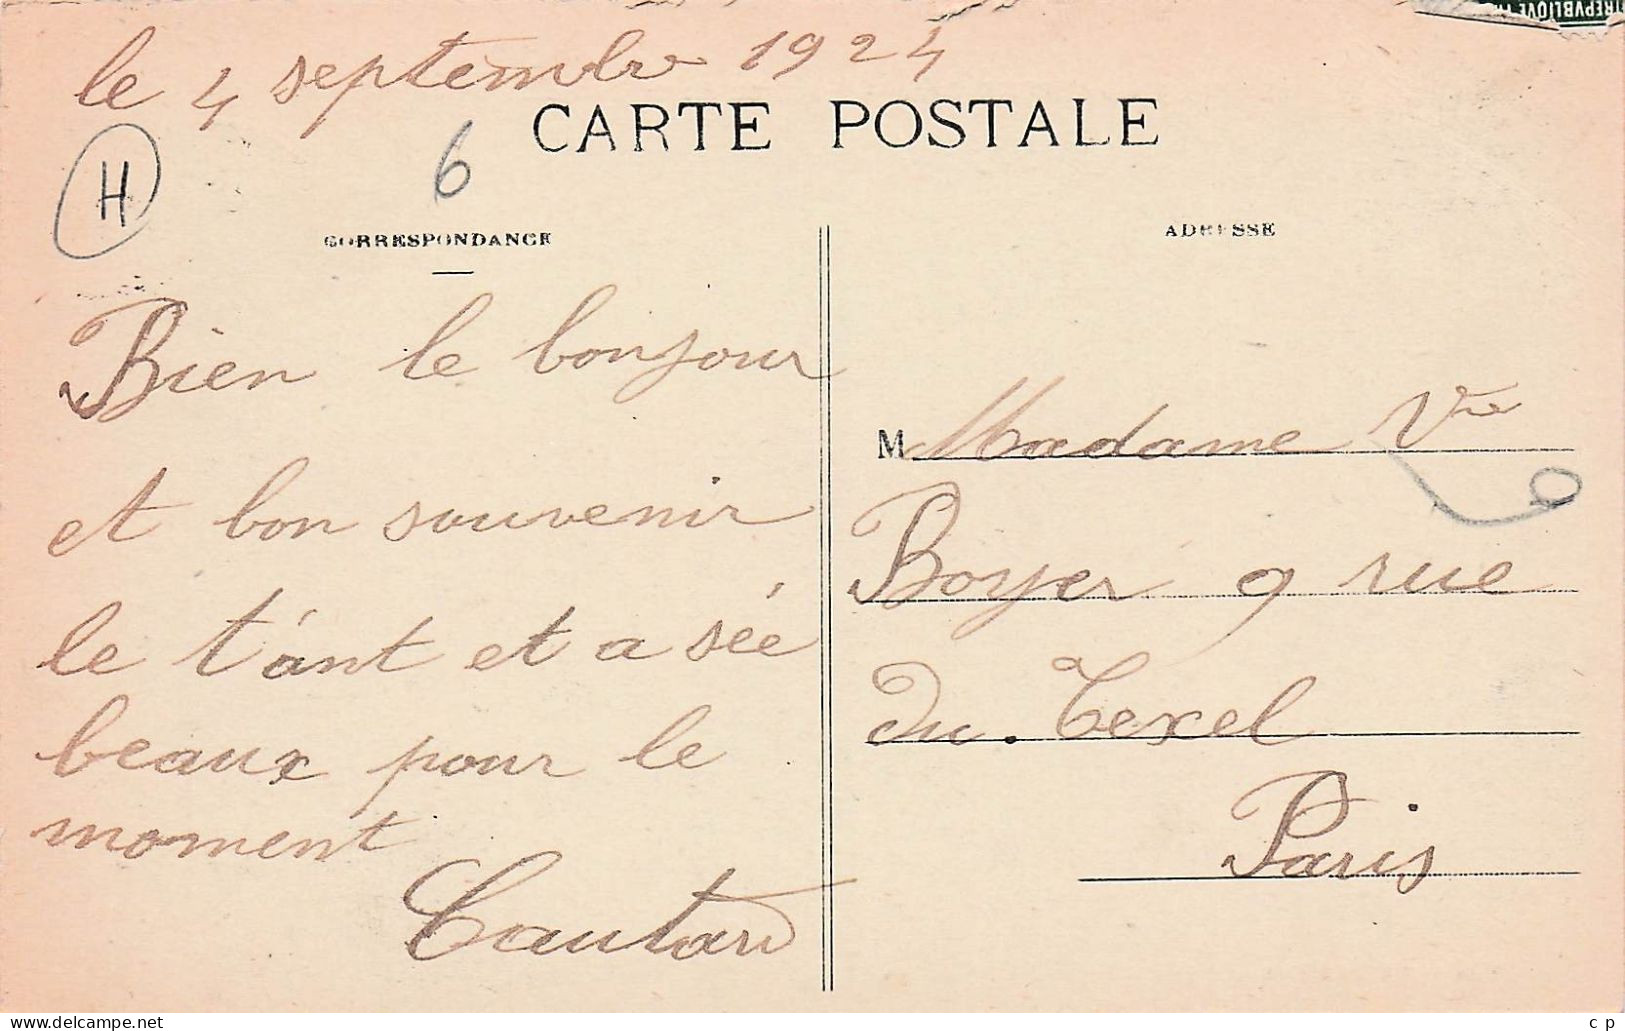 le 4 septembre 1924
CARTE POSTALE
H
6
CORRESPONDANCE
Bien le bonjour
et bon souvenir
le t'ant et a sée
beaux pour le
moment
Cautard
ADRESSE
M Madame Vve
Boyer 9 rue
Du. Texel
Paris
c p